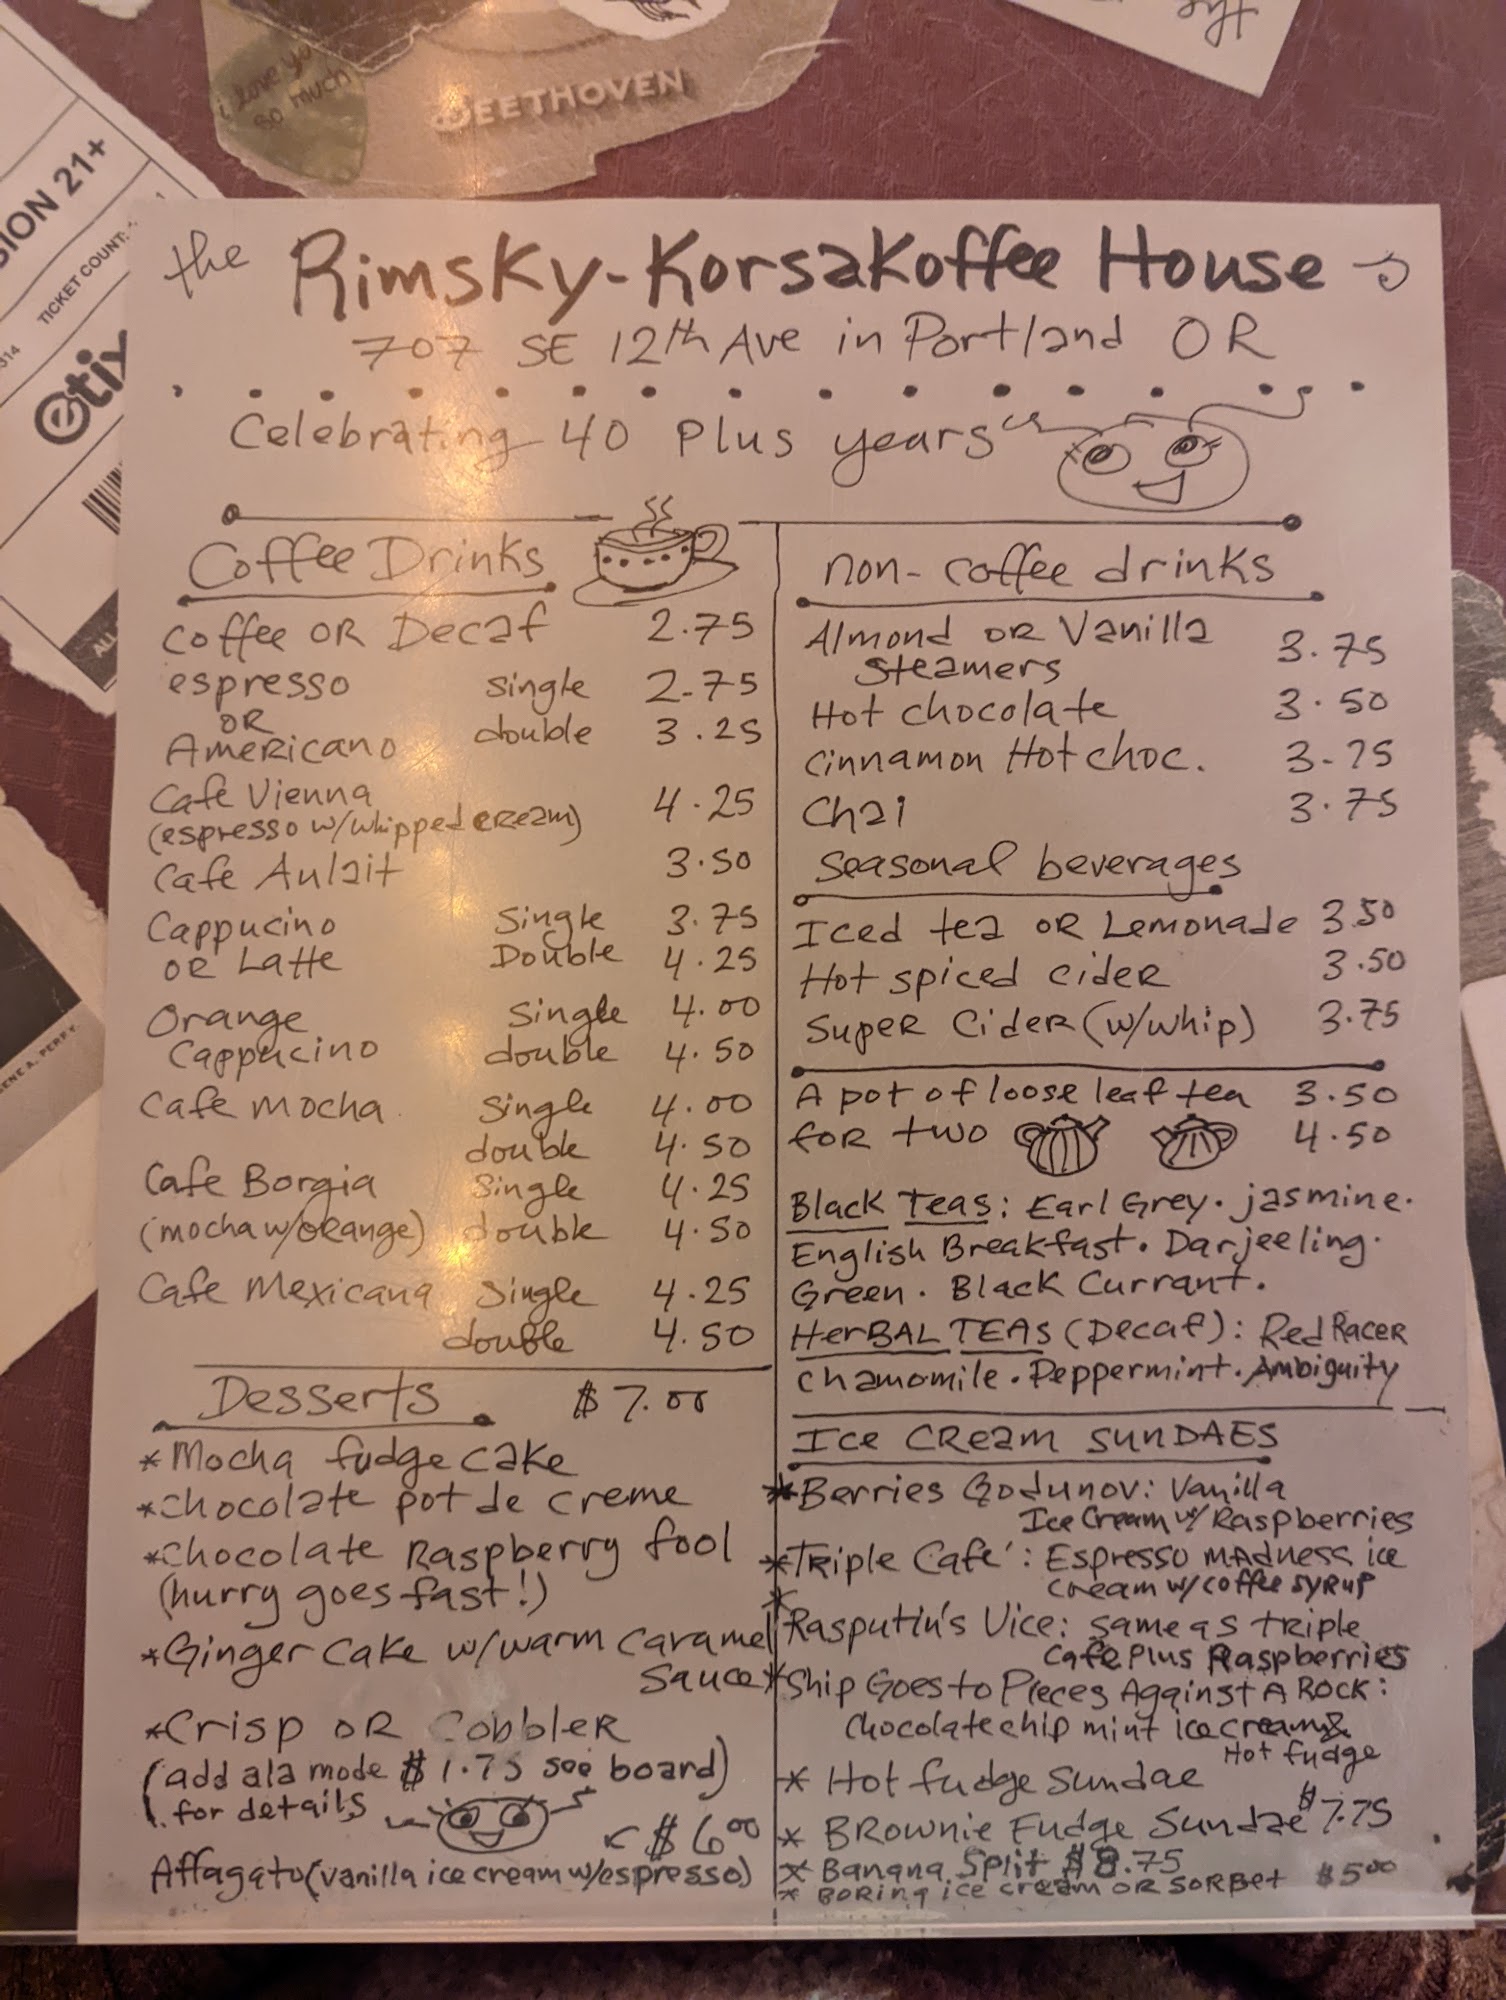 i love yo
so much
BEETHOVEN
SION 21+
TICKET COUNT:
314
etix
ALL
GENE A. PERRY
the Rimsky-Korsakoffee House
707 SE 12th Ave in Portland OR
Celebrating 40 Plus years
Coffee Drinks
Coffee OR Decaf 2.75
espresso single 2.75
OR double 3.25
Americano
Cafe Vienna 4.25
(espresso w/whipped cream)
Cafe Aulait 3.50
Cappucino Single 3.75
OR Latte Double 4.25
Orange Single 4.00
Cappucino double 4.50
Cafe mocha Single 4.00
double 4.50
Cafe Borgia Single 4.25
(mocha w/orange) double 4.50
Cafe Mexicana Single 4.25
double 4.50
Desserts $7.00
*Mocha fudge cake
*chocolate pot de creme
*chocolate Raspberry fool
(hurry goes fast!)
*Ginger cake w/warm caramel
sauce
*Crisp OR Cobbler
(add ala mode $1.75 see board)
for details
$6.00
Affagato (vanilla ice cream w/espresso)
non-coffee drinks
Almond OR Vanilla
Steamers 3.75
Hot chocolate 3.50
cinnamon Hot choc. 3.75
Chai 3.75
Seasonal beverages
Iced tea OR Lemonade 3.50
Hot spiced cider 3.50
Super Cider (w/whip) 3.75
A pot of loose leaf tea 3.50
for two 4.50
Black Teas: Earl Grey. jasmine.
English Breakfast. Darjeeling.
Green. Black Currant.
HerBAL TEAs (Decaf): Red Racer
chamomile. Peppermint. Ambiguity
Ice CReam SUNDAES
*Berries Godunov: Vanilla
Ice Cream w/ Raspberries
*Triple Cafe': Espresso madness ice
cream w/coffee syrup
*
Rasputin's Vice: same as triple
Cafe Plus Raspberries
*Ship Goes to Pieces Against A Rock:
chocolate chip mint ice cream &
Hot fudge
* Hot fudge Sundae
* BROwnie Fudge Sundae $7.75
* Banana Split $8.75
* BORing ice cream OR SORBet $5.00